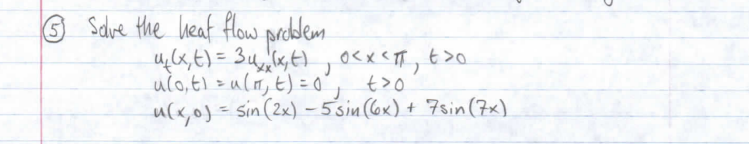 ⑤ Solve the heat flow problem
u_t(x,t) = 3u_xx(x,t) , 0<x<π , t>0
u(0,t) = u(π,t) = 0 , t>0
u(x,0) = sin(2x) - 5sin(6x) + 7sin(7x)